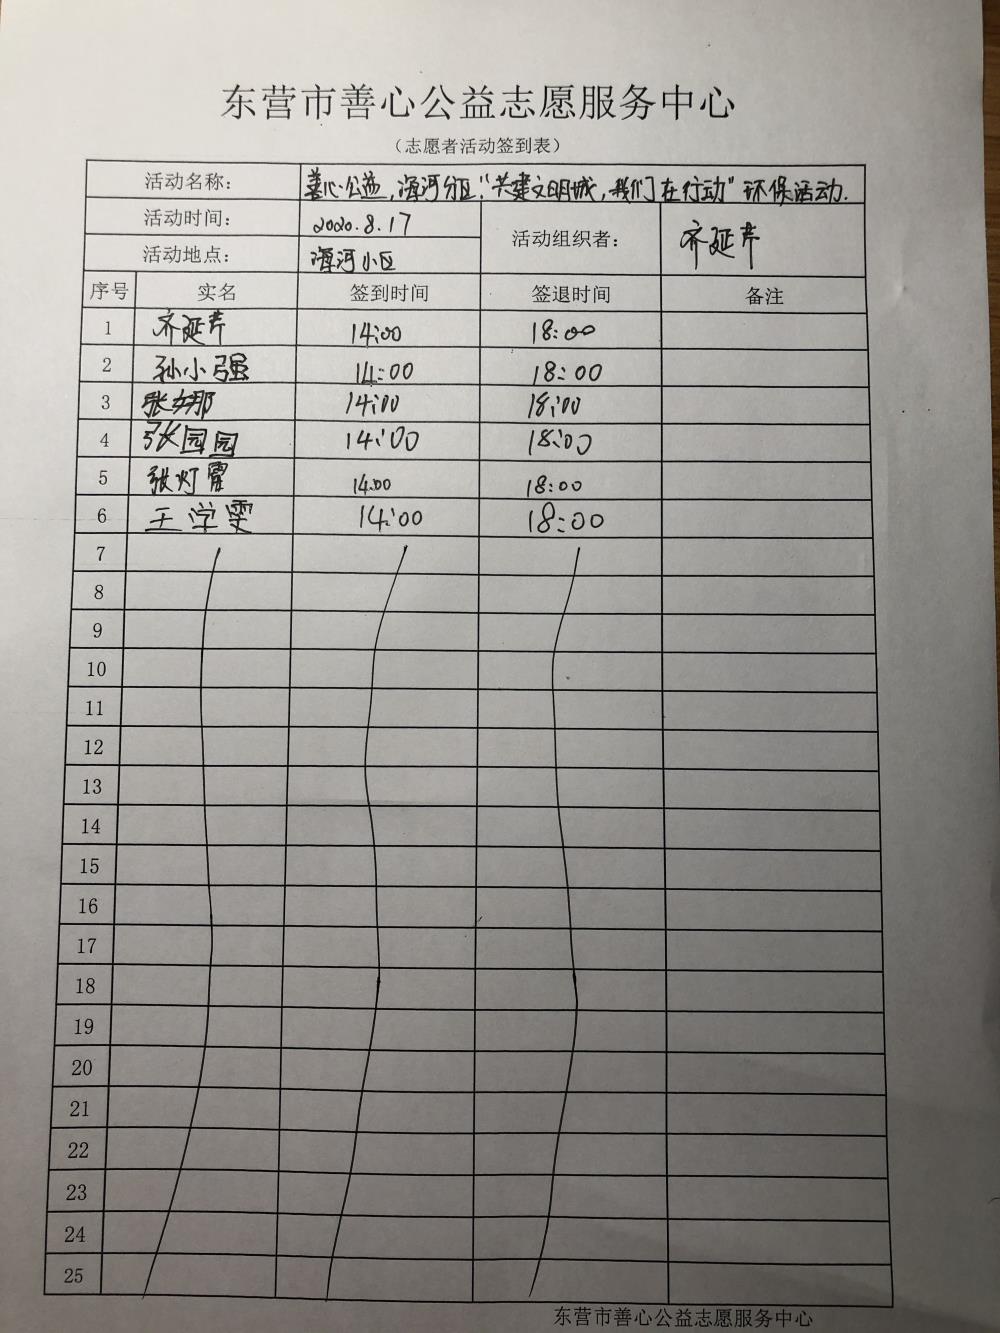 东营市善心公益志愿服务中心
（志愿者活动签到表）
活动名称： 善心公益，海河分区，“共建文明城，我们在行动”环保活动.
活动时间： 2020.8.17 活动组织者： 齐延芹
活动地点： 海河小区
序号 实名 签到时间 签退时间 备注
1 齐延芹 14:00 18:00
2 孙小强 14:00 18:00
3 张娜 14:00 18:00
4 张园园 14:00 18:00
5 张灯 14:00 18:00
6 王学雯 14:00 18:00
7
8
9
10
11
12
13
14
15
16
17
18
19
20
21
22
23
24
25
东营市善心公益志愿服务中心